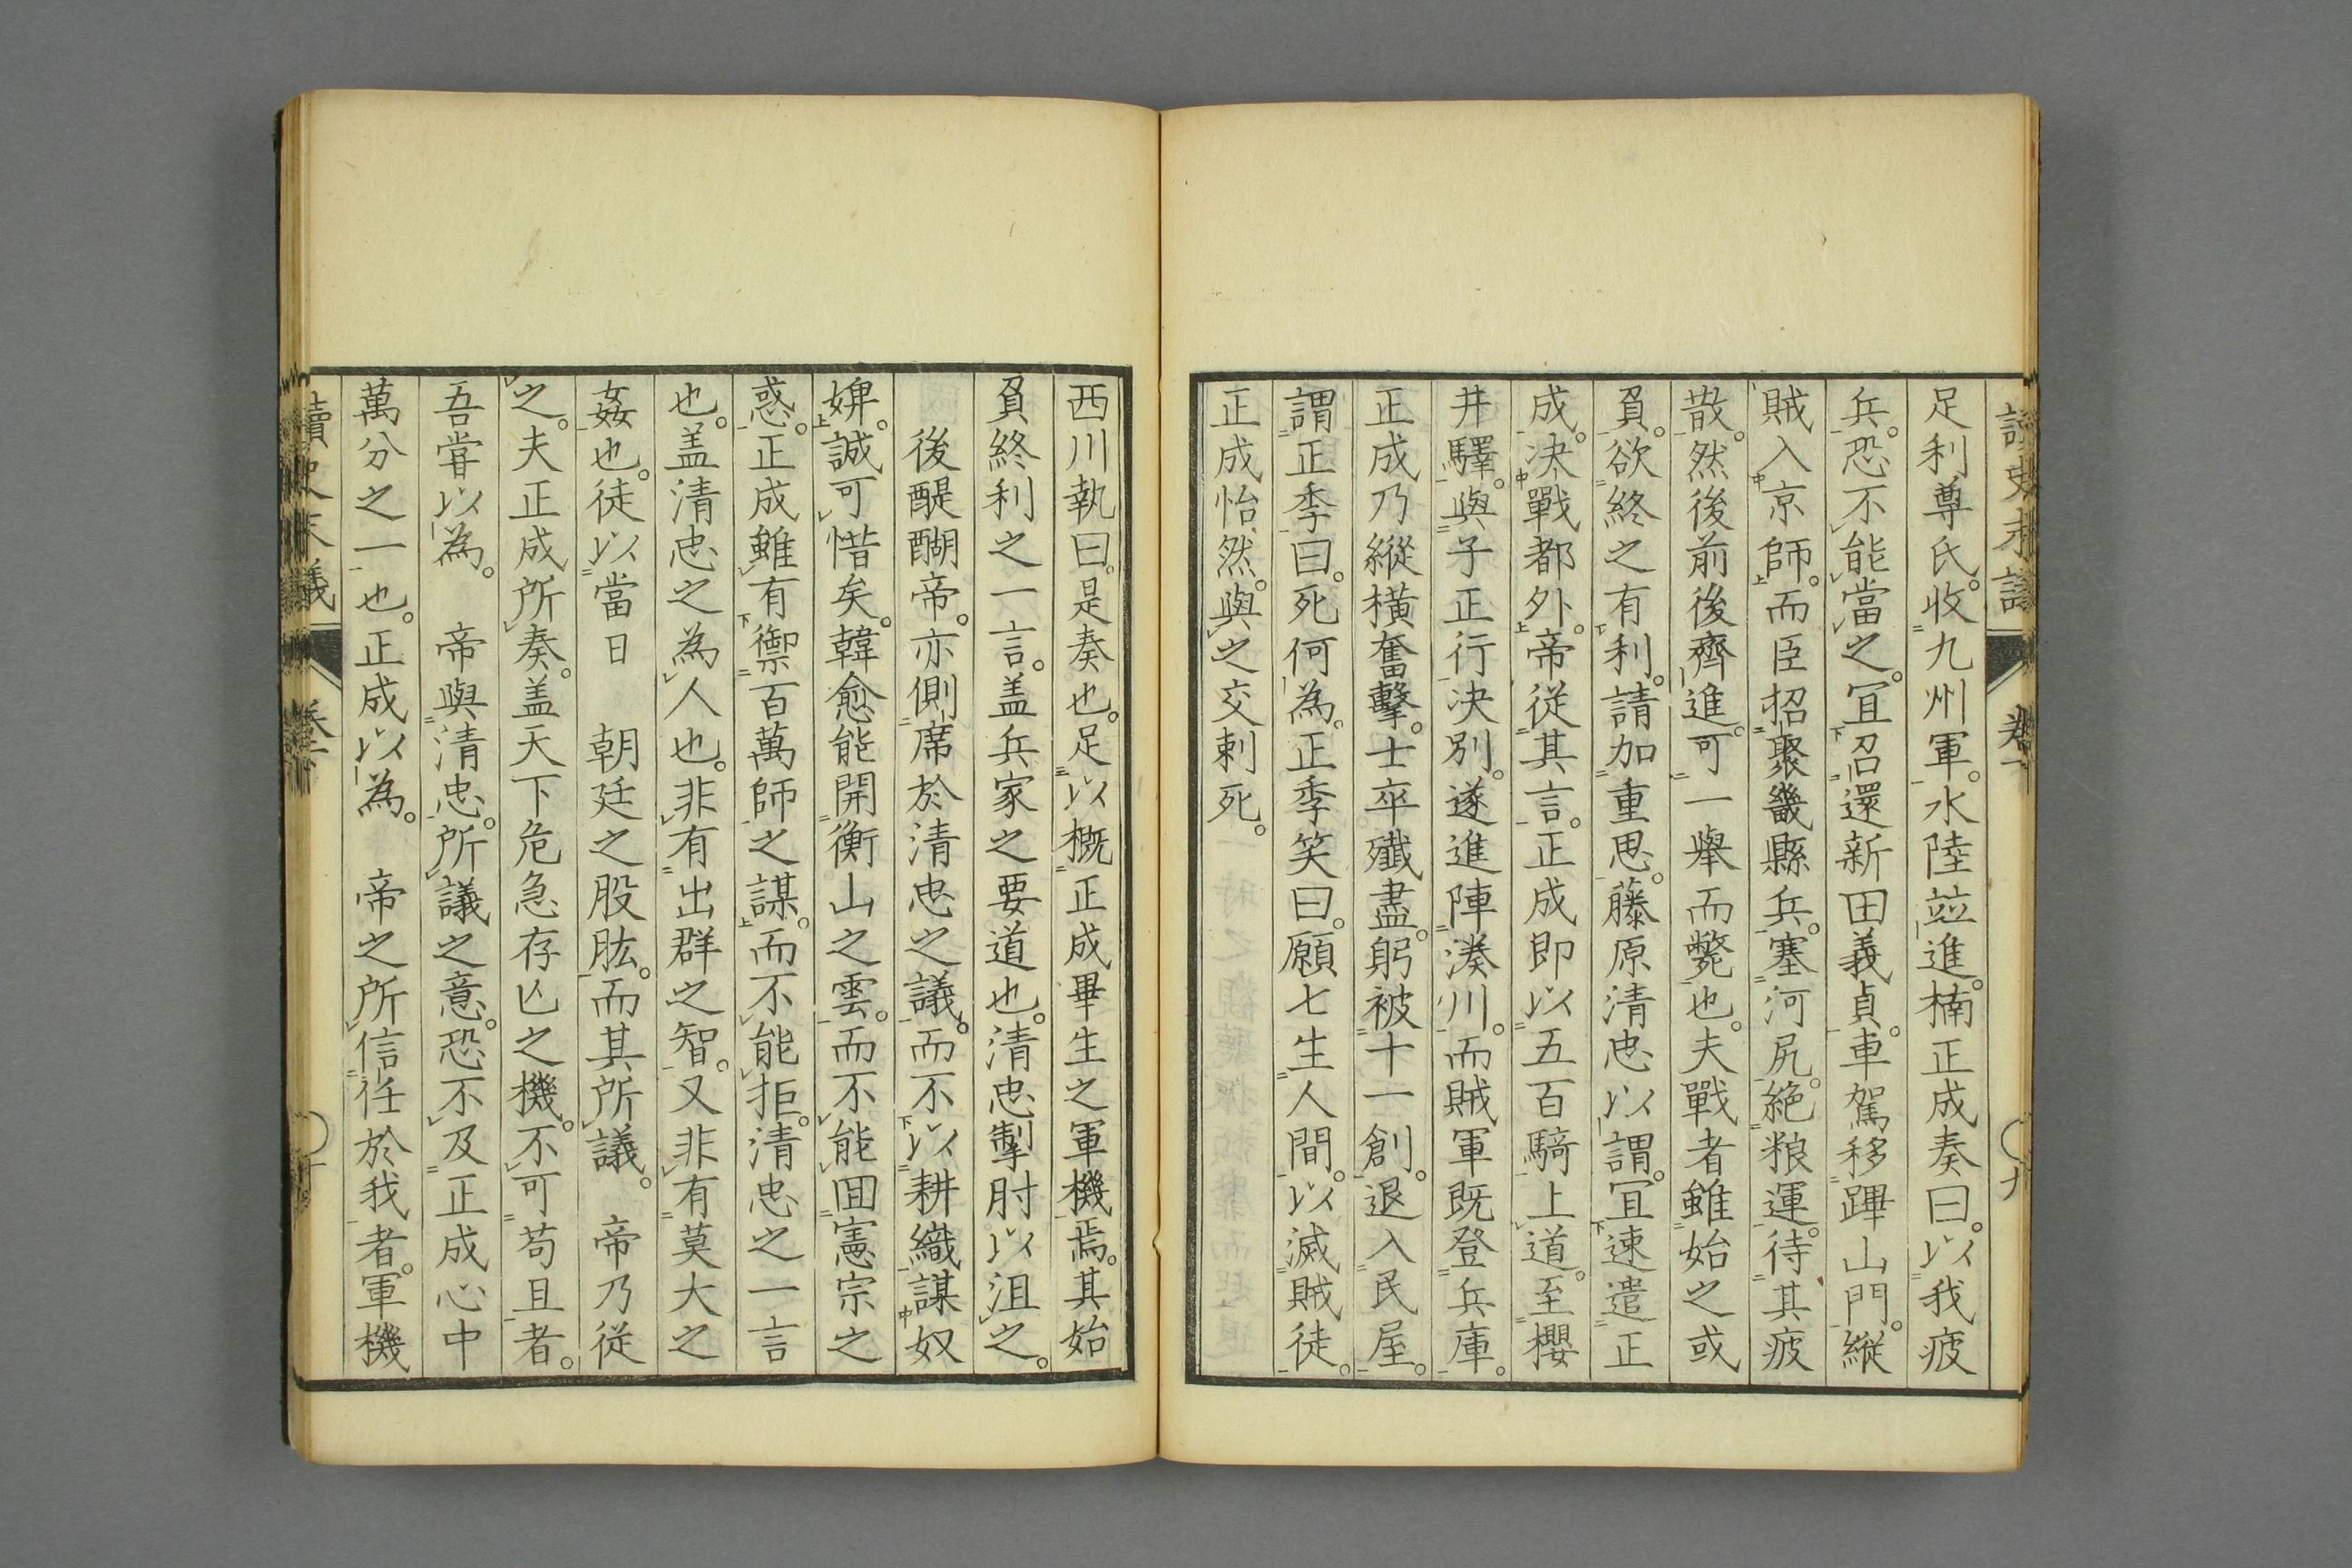 足利尊氏。收九州軍。水陸竝進。楠正成奏曰。以我疲
兵。恐不能當之。冝召還新田義貞。車駕移蹕山門。縦
賊入京師。而臣招聚畿縣兵。塞河尻。絶粮運。待其疲
散。然後前後齊進。可一擧而斃也。夫戰者雖始之或
負。欲終之有利。請加重思。藤原清忠以謂。冝速遣正
成。决戰都外。帝從其言。正成即以五百騎上道。至櫻
井驛。與子正行决別。遂進陣湊川。而賊軍既登兵庫。
正成乃縱横奮擊。士卒殱盡。躬被十一創。退入民屋。
謂正季曰。死何為。正季笑曰。願七生人間。以滅賊徒。
正成怡然。與之交刺死。
西川執曰。是奏也。足以概正成畢生之軍機焉。其始
負終利之一言。盖兵家之要道也。清忠掣肘以沮之。
後醍醐帝。亦側席於清忠之議。而不以耕織謀奴
婢。誠可惜矣。韓愈能開衡山之雲。而不能囬憲宗之
惑。正成雖有禦百萬師之謀。而不能拒。清忠之一言
也。盖清忠之為人也。非有出群之智。又非有莫大之
姦也。徒以當日　朝廷之股肱。而其所議。　帝乃從
之。夫正成所奏。盖天下危急存亾之機。不可苟且者。
吾甞以為。　帝與清忠。所議之意。恐不及正成心中
萬分之一也。正成以為。　帝之所信任於我者。軍機